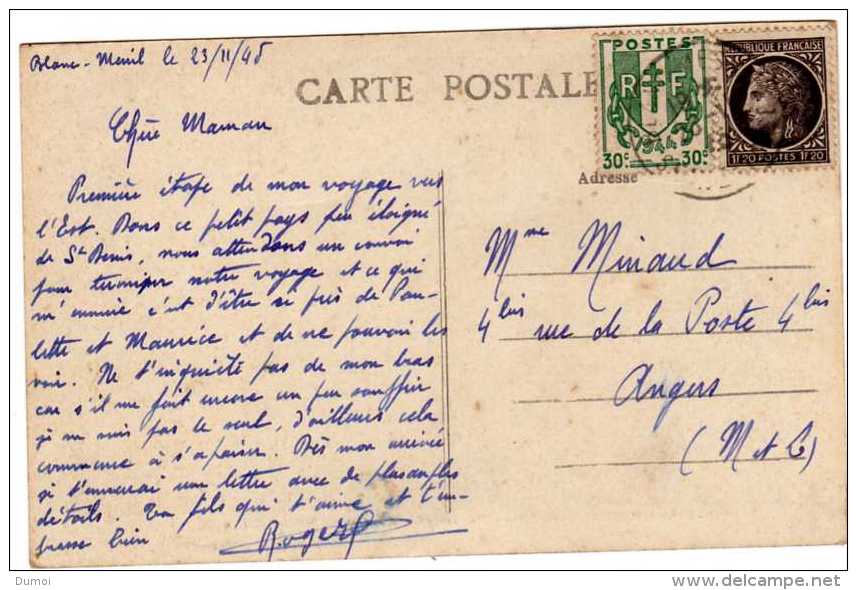 Blanc-Ménil le 23/11/45
CARTE POSTALE
POSTES
R F
1944
30c 30c
REPUBLIQUE FRANCAISE
1F20 POSTES 1F20
Chère Maman
Première étape de mon voyage vers
l'Est. Dans ce petit pays peu éloigné
de St Denis, nous attendons un convoi
pour terminer notre voyage et ce qui
m'ennuie c'est d'être si près de Pau-
lette et Maurice et de ne pouvoir les
voir. Ne t'inquiète pas de mon bras
car s'il me fait encore un peu souffrir
je ne suis pas le seul, d'ailleurs cela
commence à s'apaiser. Dès mon arrivée
je t'enverrai une lettre avec de plus amples
détails. Ton fils qui t'aime et t'em-
brasse bien
Roger
Adresse
Mme Minaud
4bis rue de la Poste 4bis
Angers
(M et L)
Dumoi
delcampe.net